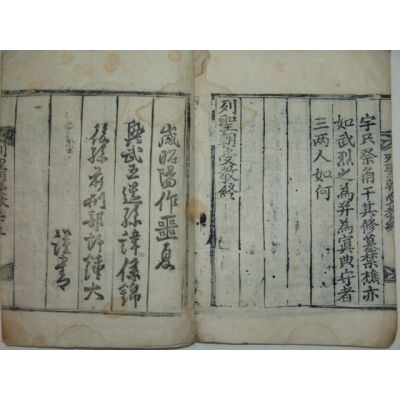 祭角干其修墓禁樵亦
如武烈之為并為寘典守者
三两人如何
列聖朝受教終
歲昭陽作噩夏
興武王遠孫錦
後孫前刑部郎鍾大
謹書